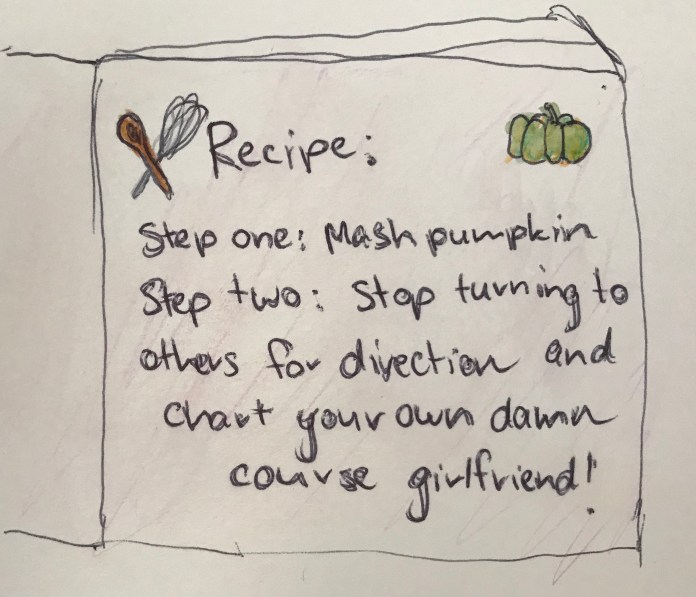 Recipe:
Step one: Mash pumpkin
Step two: Stop turning to
others for direction and
chart your own damn
course girlfriend!